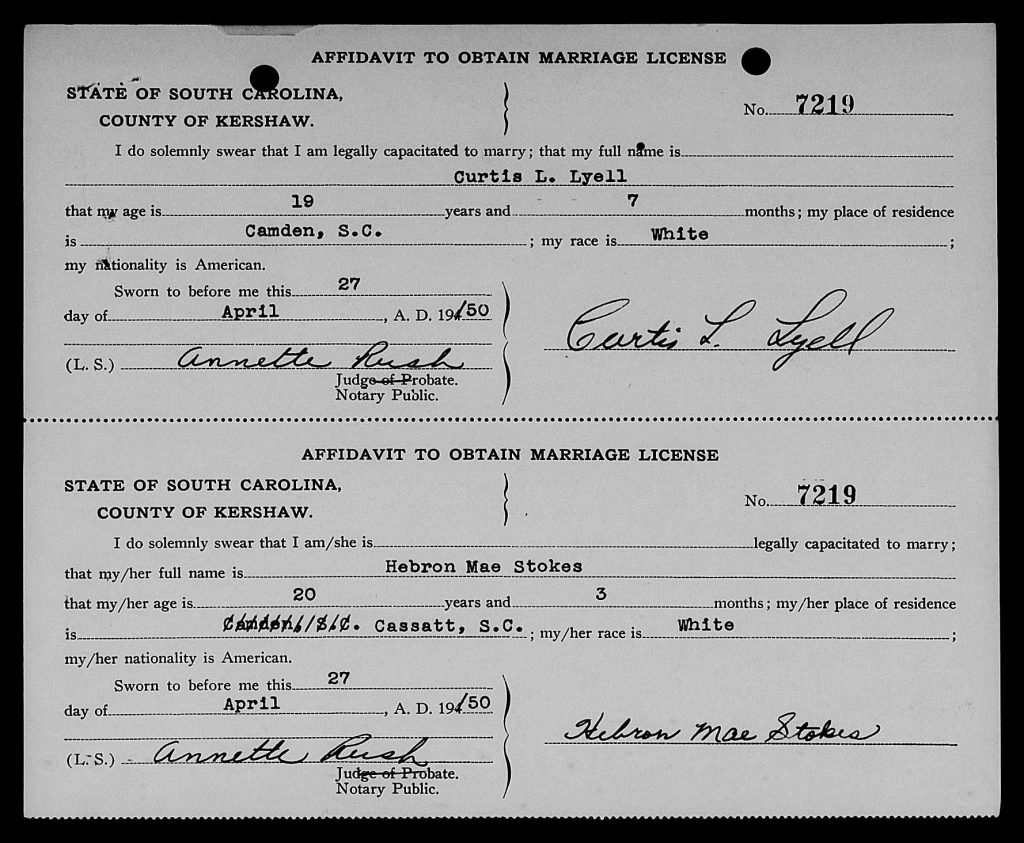 AFFIDAVIT TO OBTAIN MARRIAGE LICENSE
STATE OF SOUTH CAROLINA,
COUNTY OF KERSHAW.
No. 7219
I do solemnly swear that I am legally capacitated to marry; that my full name is
Curtis L. Lyell
that my age is 19 years and 7 months; my place of residence
is Camden, S.C. ; my race is White ;
my nationality is American.
Sworn to before me this 27
day of April, A. D. 194/50
Curtis L. Lyell
(L. S.) Annette Rush
Judge of Probate.
Notary Public.
AFFIDAVIT TO OBTAIN MARRIAGE LICENSE
STATE OF SOUTH CAROLINA,
COUNTY OF KERSHAW.
No. 7219
I do solemnly swear that I am/she is legally capacitated to marry;
that my/her full name is Hebron Mae Stokes
that my/her age is 20 years and 3 months; my/her place of residence
is Camden, S.C. Cassatt, S.C. ; my/her race is White ;
my/her nationality is American.
Sworn to before me this 27
day of April, A. D. 194/50
Hebron Mae Stokes
(L. S.) Annette Rush
Judge of Probate.
Notary Public.